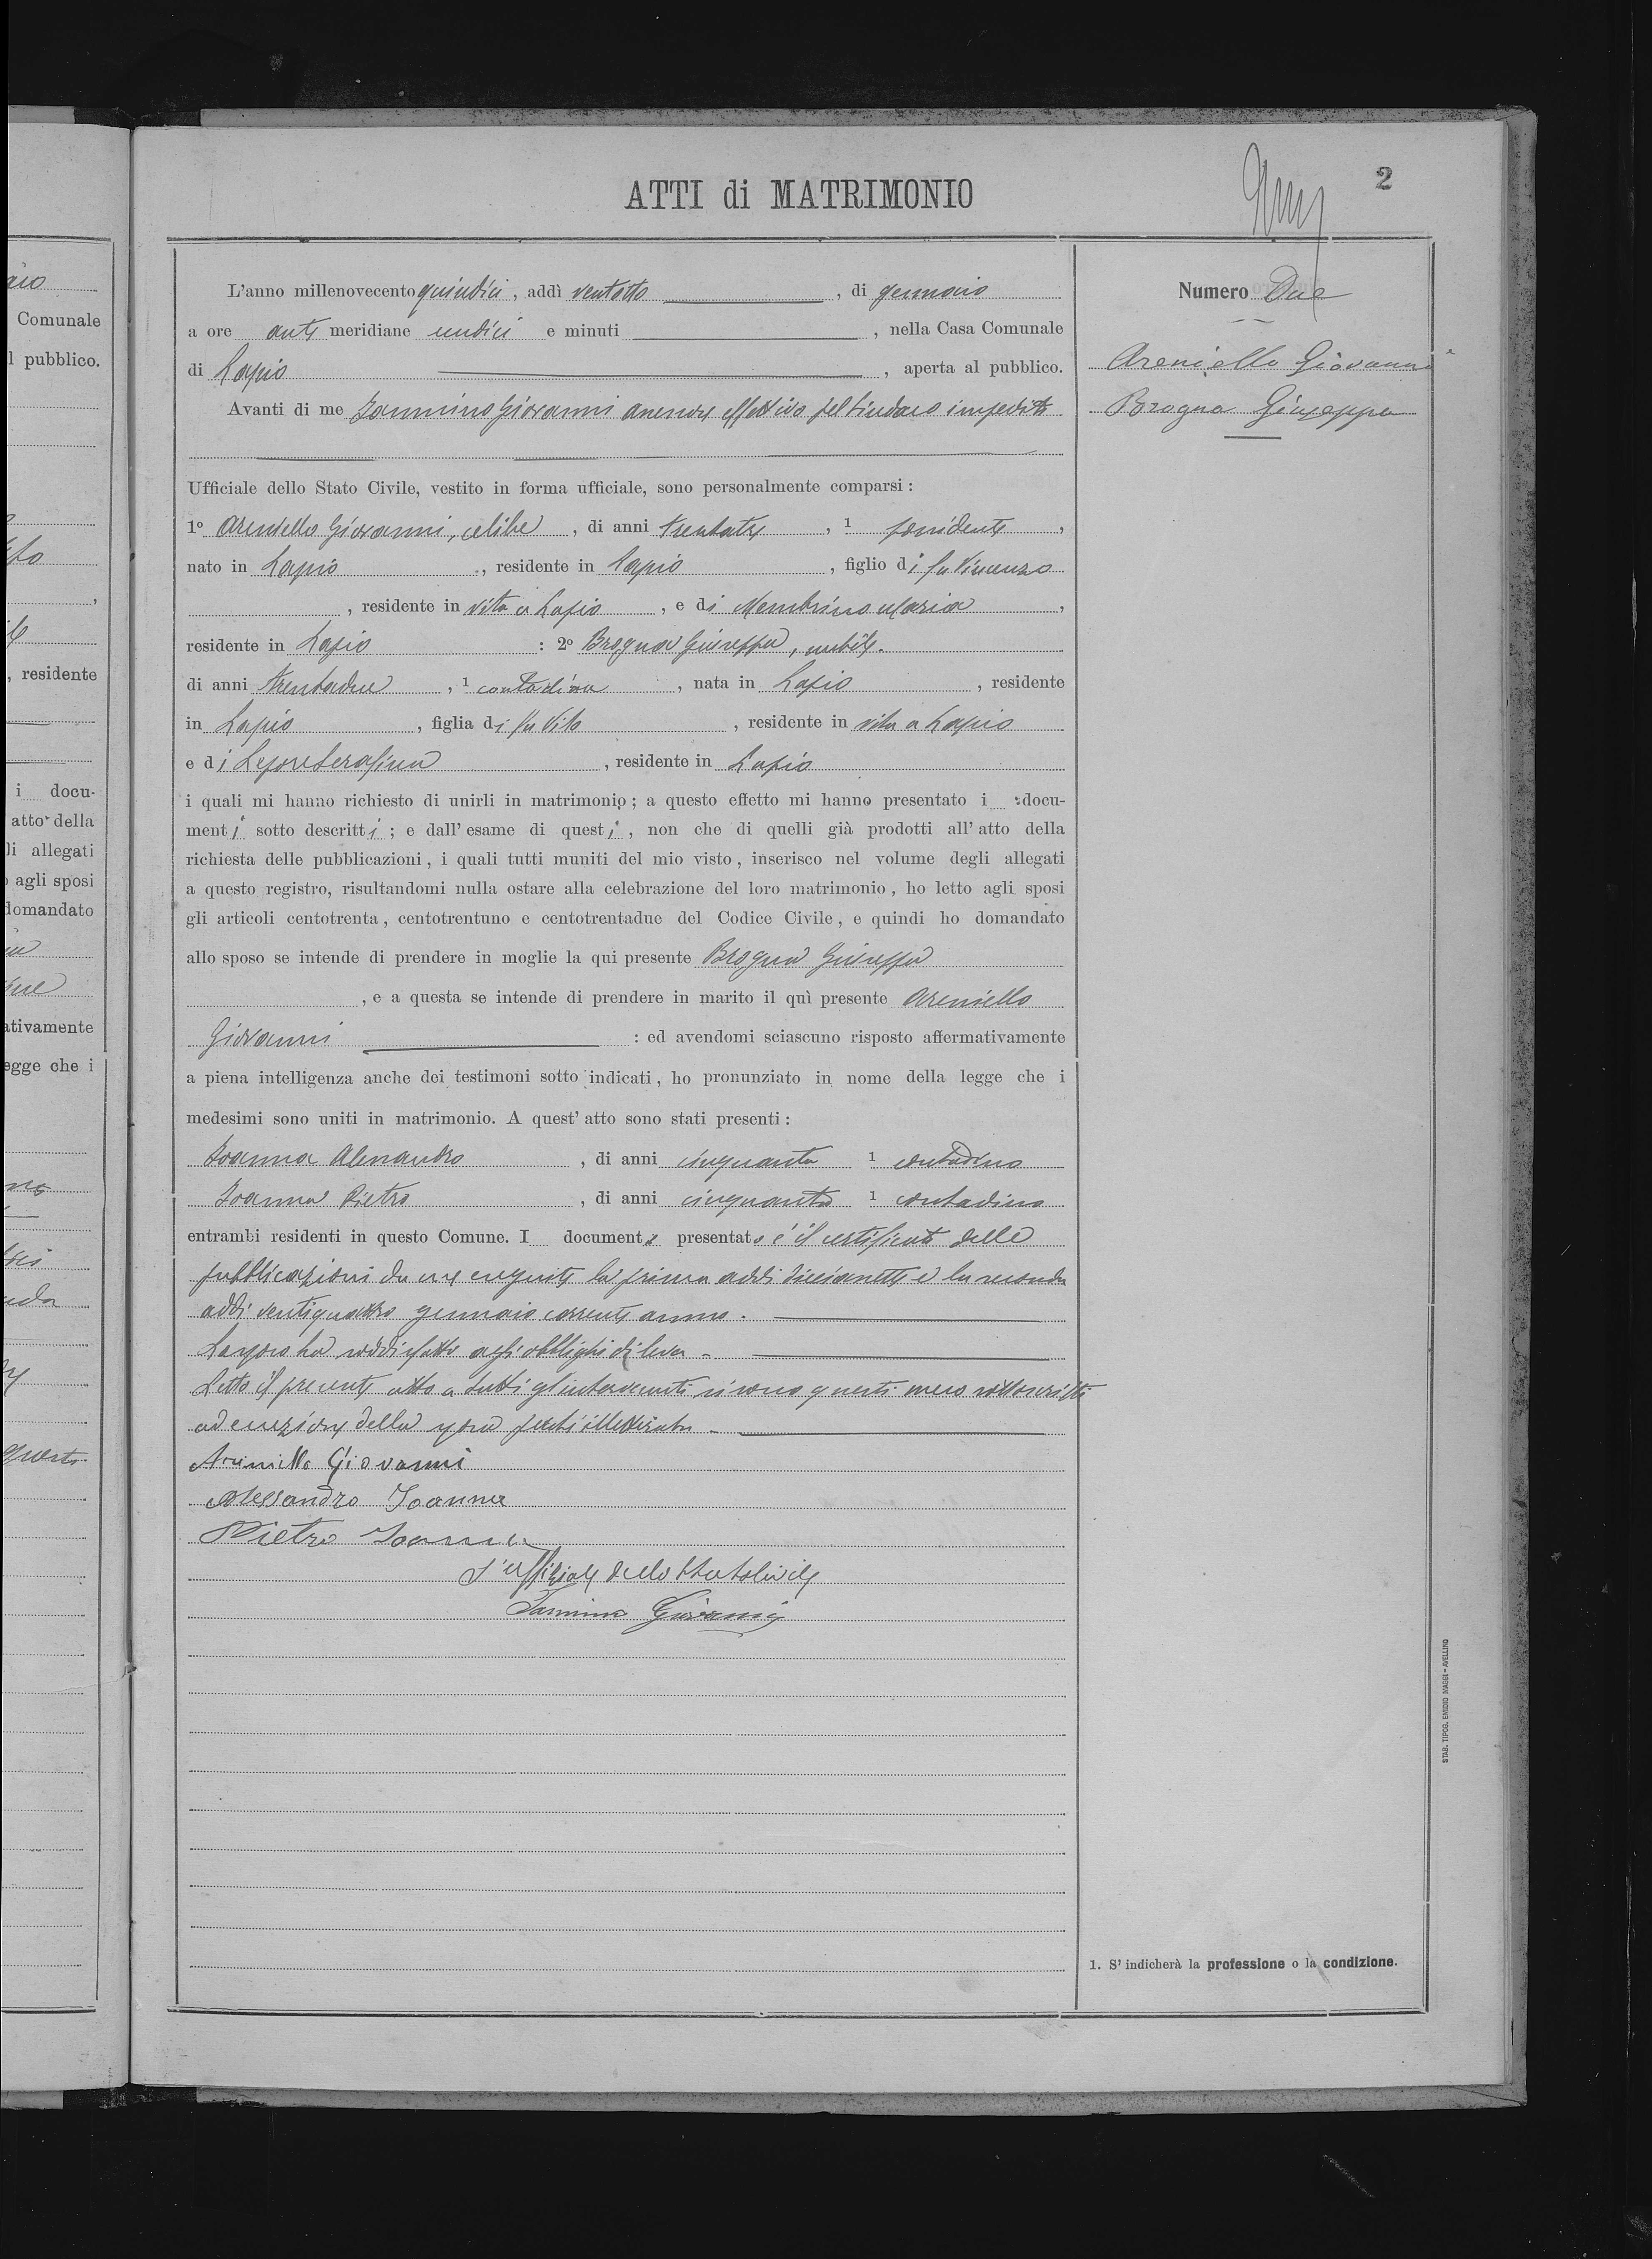 aio
Comunale
l pubblico.
, residente
i docu-
atto della
li allegati
agli sposi
domandato
ativamente
egge che i
questi
2
ATTI di MATRIMONIO
L'anno millenovecento quindici, addì ventotto, di gennaio
a ore anti meridiane undici e minuti, nella Casa Comunale
di Lapio, aperta al pubblico.
Avanti di me Iannino Giovanni assessore effettivo pel Sindaco impedito
Ufficiale dello Stato Civile, vestito in forma ufficiale, sono personalmente comparsi:
1º Areniello Giovanni, celibe, di anni trentatre, 1 possidente,
nato in Lapio, residente in Lapio, figlio di fu Vincenzo
, residente in vita a Lapio, e di Membrino Maria,
residente in Lapio: 2º Brogna Giuseppa, nubile.
di anni trentadue, 1 contadina, nata in Lapio, residente
in Lapio, figlia di fu Vito, residente in vita a Lapio
e di Lepore Serafina, residente in Lapio
i quali mi hanno richiesto di unirli in matrimonio; a questo effetto mi hanno presentato i docu-
menti sotto descritti; e dall'esame di questi, non che di quelli già prodotti all'atto della
richiesta delle pubblicazioni, i quali tutti muniti del mio visto, inserisco nel volume degli allegati
a questo registro, risultandomi nulla ostare alla celebrazione del loro matrimonio, ho letto agli sposi
gli articoli centotrenta, centotrentuno e centotrentadue del Codice Civile, e quindi ho domandato
allo sposo se intende di prendere in moglie la qui presente Brogna Giuseppa
, e a questa se intende di prendere in marito il quì presente Areniello
Giovanni: ed avendomi sciascuno risposto affermativamente
a piena intelligenza anche dei testimoni sotto indicati, ho pronunziato in nome della legge che i
medesimi sono uniti in matrimonio. A quest'atto sono stati presenti:
Ioanna Alessandro, di anni cinquanta 1 contadino
Ioanna Pietro, di anni cinquanta 1 contadino
entrambi residenti in questo Comune. I documento presentato è il certificato delle
pubblicazioni da me eseguite la prima addì diciassette e la seconda
addì ventiquattro gennaio corrente anno.
Lo sposo ha soddisfatto agli obblighi di leva.
Letto il presente atto a tutti gl'intervenuti si sono questi meco sottoscritti
ad eccezione della sposa perché illetterata.
Areniello Giovanni
Alessandro Ioanna
Pietro Ioanna
L'Uffiziale dello Stato Civile
Iannino Giovanni
Numero Due
Areniello Giovanni
Brogna Giuseppa
1. S'indicherà la professione o la condizione.
STAB. TIPOG. EMIDIO MAGGI - AVELLINO